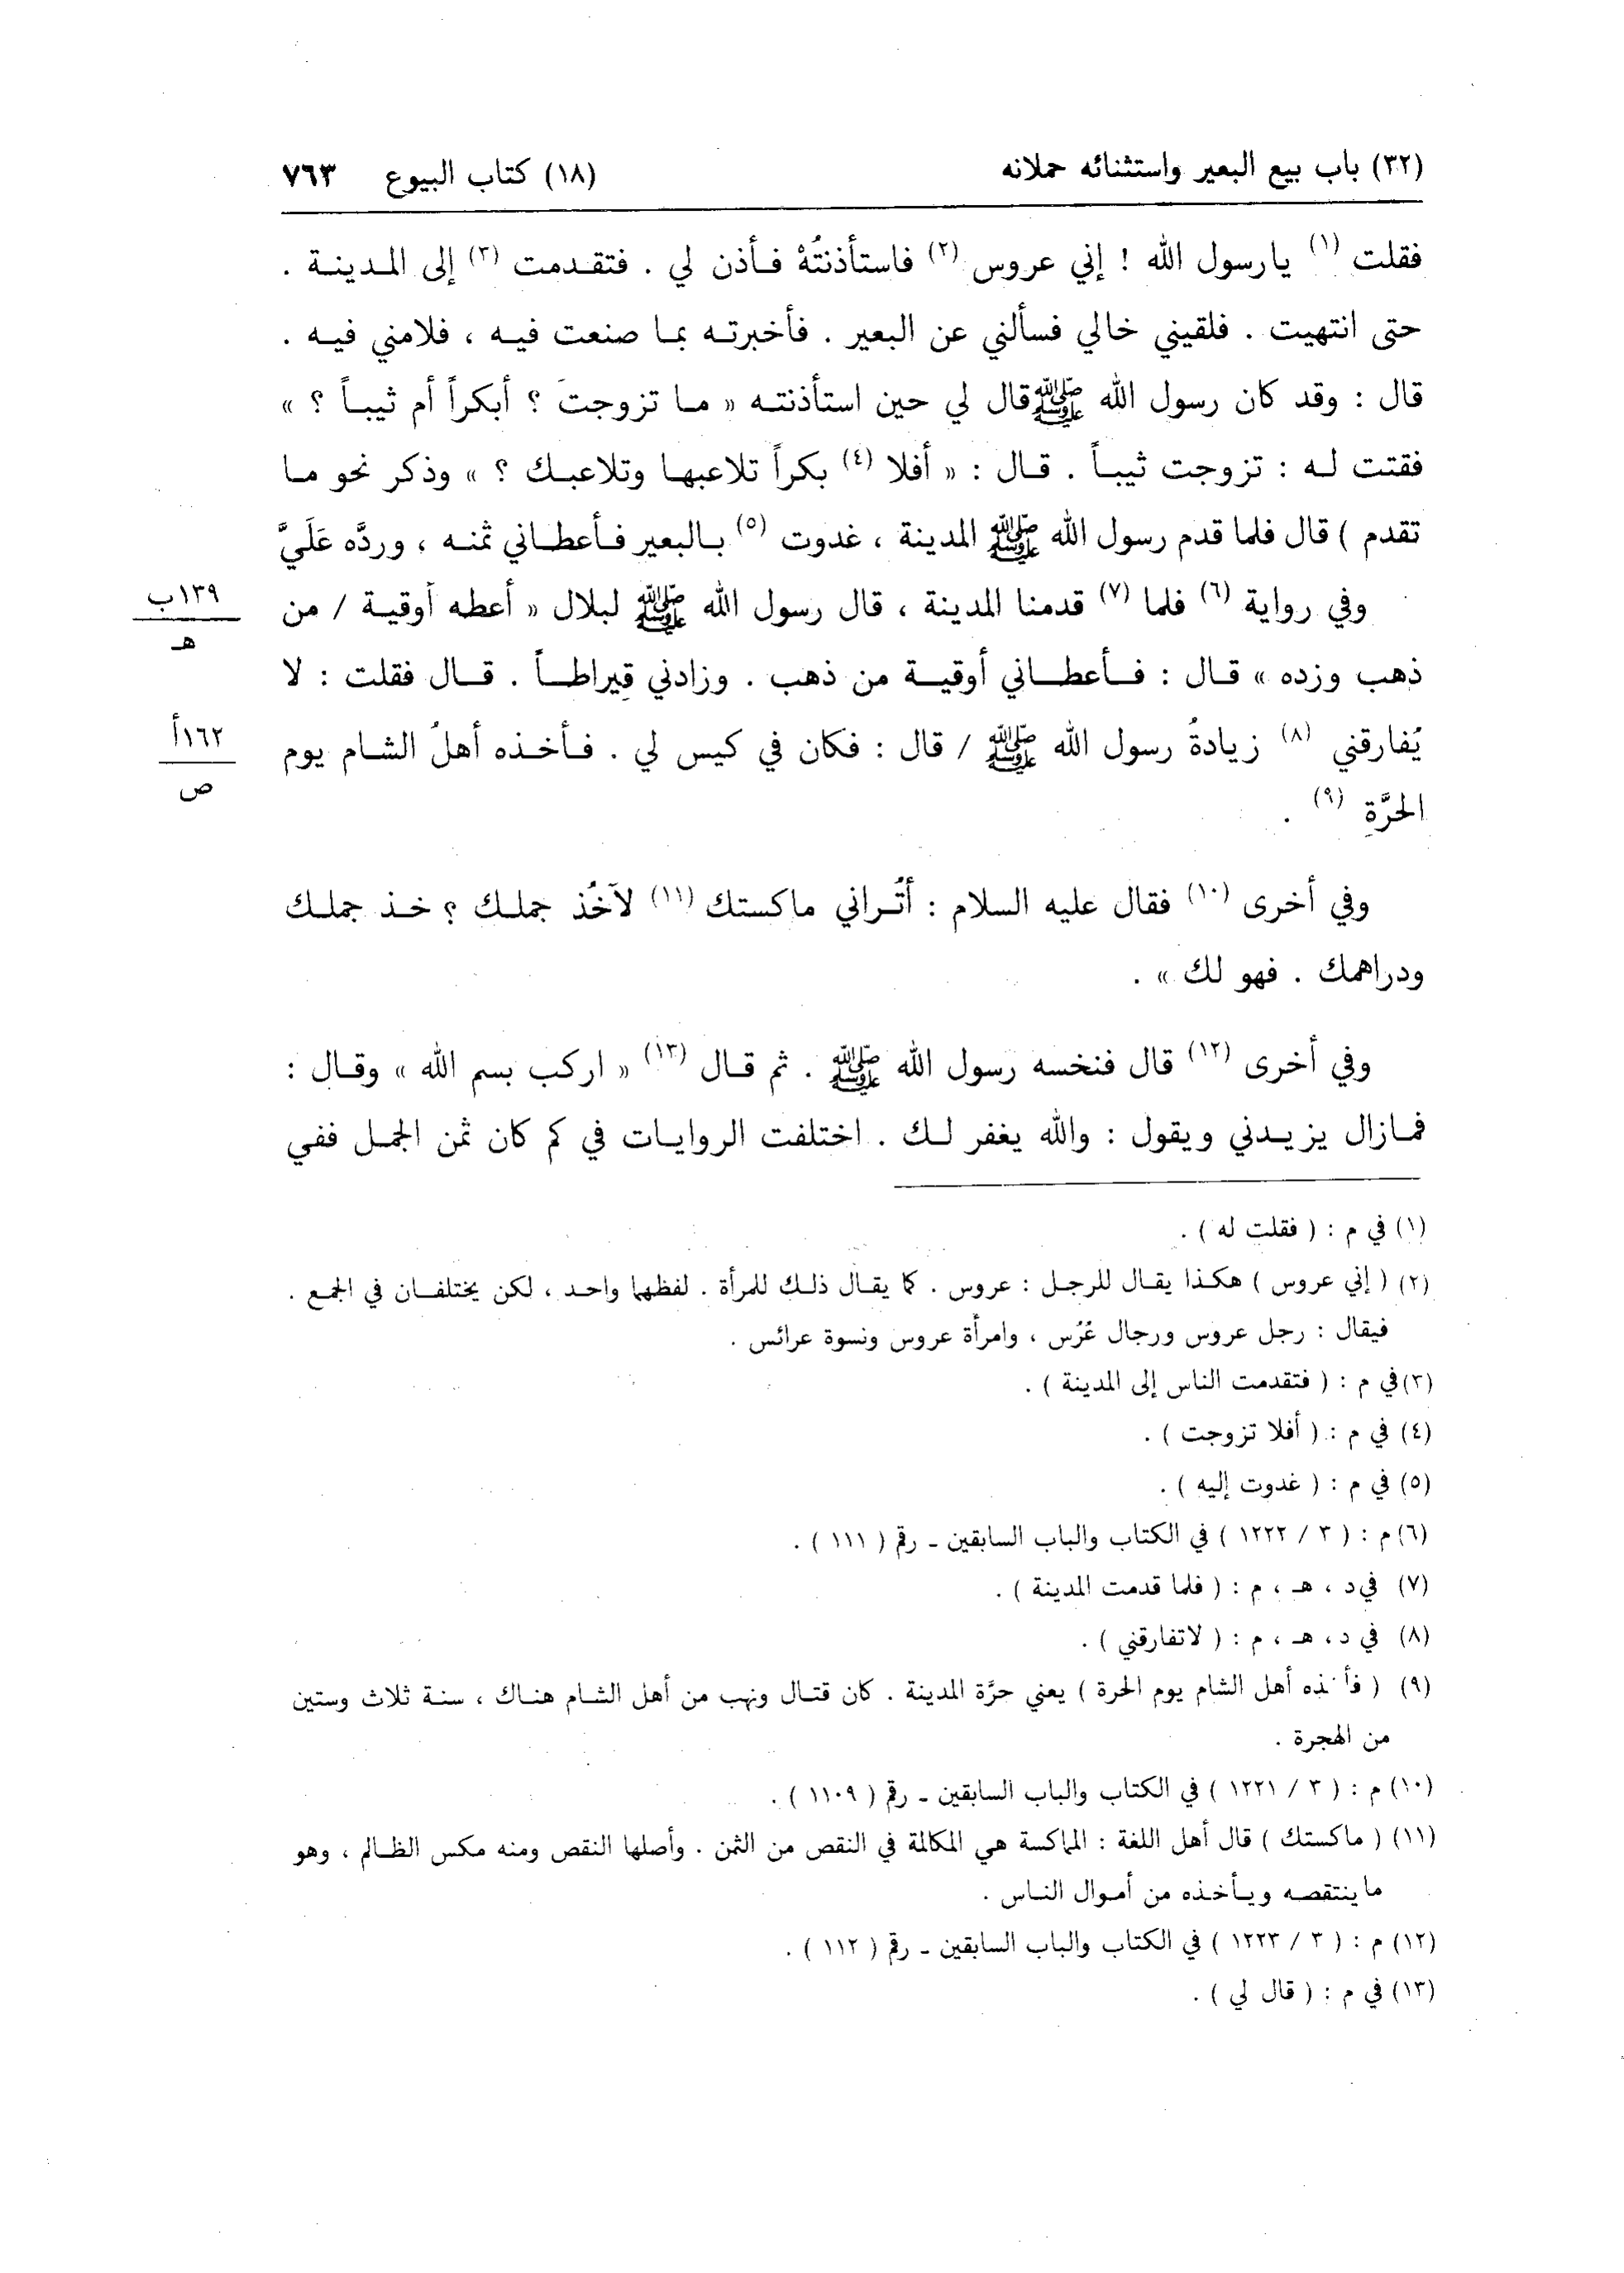 (٣٢) باب بيع البعير واستثنائه حملانه (١٨) كتاب البيوع ٧٦٣
فقلت (١) يارسول الله ! إني عروس (٢) فاستأذنتُهْ فأذن لي . فتقدمت (٣) إلى المدينة .
حتى انتهيت . فلقيني خالي فسألني عن البعير . فأخبرته بما صنعت فيه ، فلامني فيه .
قال : وقد كان رسول الله ﷺ قال لي حين استأذنته « ما تزوجتَ ؟ أبكراً أم ثيباً ؟ »
فقتت له : تزوجت ثيباً . قال : « أفلا (٤) بكراً تلاعبها وتلاعبك ؟ » وذكر نحو ما
تقدم ) قال فلما قدم رسول الله ﷺ المدينة ، غدوت (٥) بالبعير فأعطاني ثمنه ، وردَّه عَلَيَّ
وفي رواية (٦) فلما (٧) قدمنا المدينة ، قال رسول الله ﷺ لبلال « أعطه أوقية / من
١٣٩ب
هـ
ذهب وزده » قال : فأعطاني أوقية من ذهب . وزادني قيراطاً . قال فقلت : لا
يُفارقني (٨) زيادةُ رسول الله ﷺ / قال : فكان في كيس لي . فأخذه أهلُ الشام يوم
١٦٢أ
ص
الحرَّة (٩) .
وفي أخرى (١٠) فقال عليه السلام : أتُراني ماكستك (١١) لآخُذ جملك ؟ خذ جملك
ودراهمك . فهو لك » .
وفي أخرى (١٢) قال فنخسه رسول الله ﷺ . ثم قال (١٣) « اركب بسم الله » وقال :
فمازال يزيدني ويقول : والله يغفر لك . اختلفت الروايات في كم كان ثمن الجمل ففي
(١) في م : ( فقلت له ) .
(٢) ( إني عروس ) هكذا يقال للرجل : عروس . كما يقال ذلك للمرأة . لفظهما واحد ، لكن يختلفان في الجمع .
فيقال : رجل عروس ورجال عُرُس ، وامرأة عروس ونسوة عرائس .
(٣) في م : ( فتقدمت الناس إلى المدينة ) .
(٤) في م : ( أفلا تزوجت ) .
(٥) في م : ( غدوت إليه ) .
(٦) م : ( ٣ / ١٢٢٢ ) في الكتاب والباب السابقين - رقم ( ١١١ ) .
(٧) في د ، هـ ، م : ( فلما قدمت المدينة ) .
(٨) في د ، هـ ، م : ( لاتفارقني ) .
(٩) ( فأخذه أهل الشام يوم الحرة ) يعني حرَّة المدينة . كان قتال ونهب من أهل الشام هناك ، سنة ثلاث وستين
من الهجرة .
(١٠) م : ( ٣ / ١٢٢١ ) في الكتاب والباب السابقين - رقم ( ١١٠٩ ) .
(١١) ( ماكستك ) قال أهل اللغة : المماكسة هي المكالمة في النقص من الثمن . وأصلها النقص ومنه مكس الظالم ، وهو
ماينتقصه ويأخذه من أموال الناس .
(١٢) م : ( ٣ / ١٢٢٣ ) في الكتاب والباب السابقين - رقم ( ١١٢ ) .
(١٣) في م : ( قال لي ) .